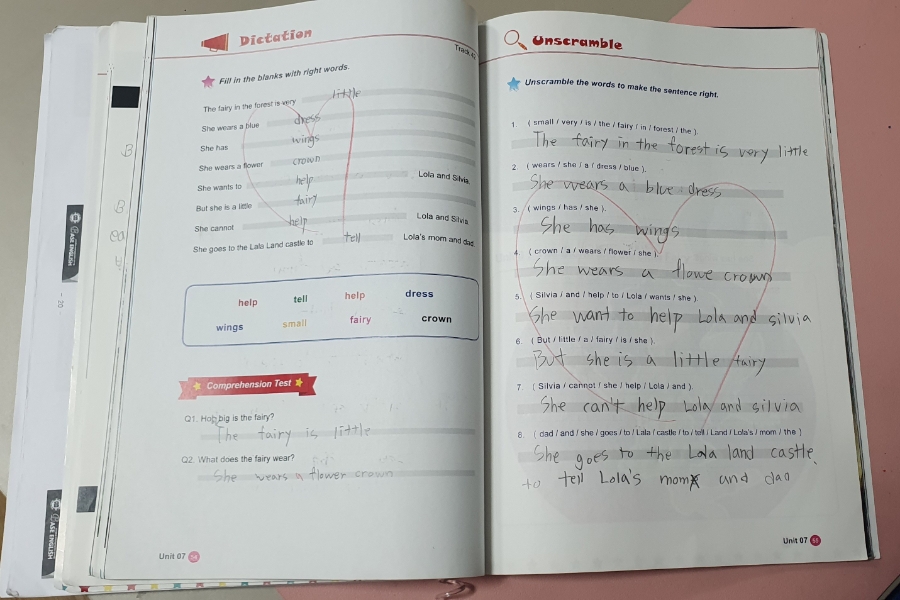 Dictation
Track
Fill in the blanks with right words.
The fairy in the forest is very little
She wears a blue dress
She has wings
She wears a flower crown
She wants to help Lola and Silvia.
But she is a little fairy
She cannot help Lola and Silvia
She goes to the Lala Land castle to tell Lola's mom and dad
help tell help dress
wings small fairy crown
Comprehension Test
Q1. How big is the fairy?
The fairy is little
Q2. What does the fairy wear?
She wears a flower crown
Unit 07
Unscramble
Unscramble the words to make the sentence right.
1. ( small / very / is / the / fairy / in / forest / the ).
The fairy in the forest is very little
2. ( wears / she / a / dress / blue ).
She wears a blue dress
3. ( wings / has / she ).
She has wings
4. ( crown / a / wears / flower / she ).
She wears a flowe crown
5. ( Silvia / and / help / to / Lola / wants / she )
She want to help Lola and silvia
6. ( But / little / a / fairy / is / she ).
But she is a little fairy
7. ( Silvia / cannot / she / help / Lola / and ).
She can't help Lola and silvia
8. ( dad / and / she / goes / to / Lala / castle / to / tell / Land / Lola's / mom / the )
She goes to the Lala land castle
to tell Lola's mom and dad
Unit 07
ASE ENGLISH
20
ASE ENGLISH